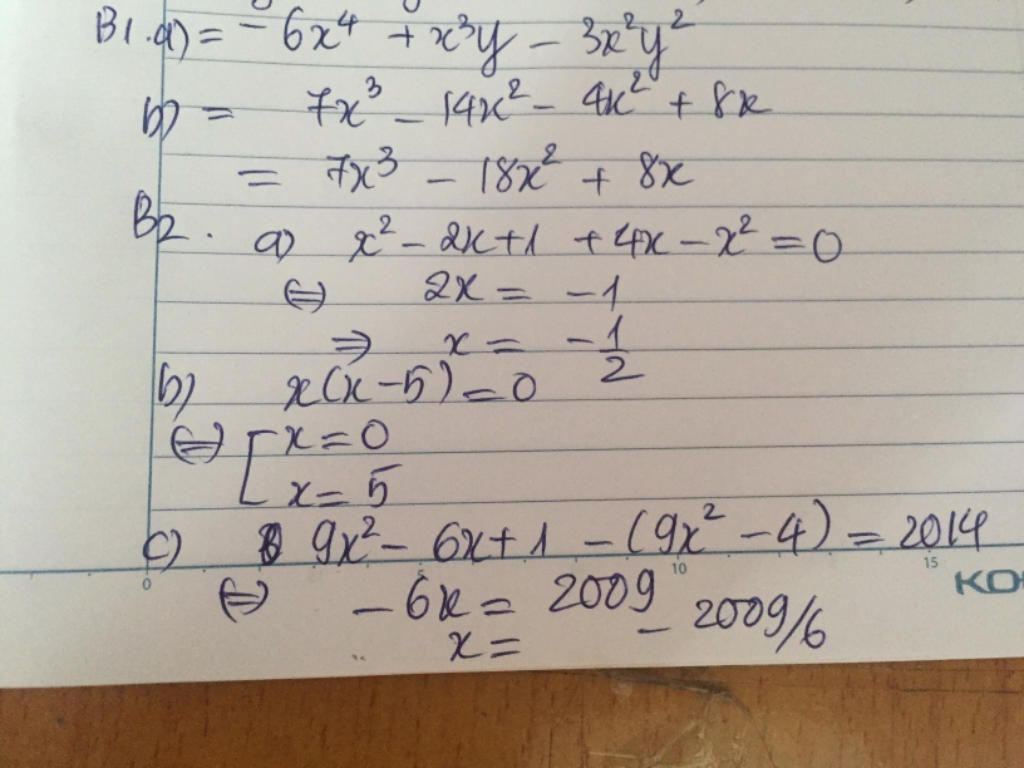 B1. a) = -6x⁴ + x³y - 3x²y²
b) = 7x³ - 14x² - 4x² + 8x
= 7x³ - 18x² + 8x
B2. a) x² - 2x + 1 + 4x - x² = 0
⇔ 2x = -1
⇒ x = -1/2
b) x(x-5) = 0
⇔ [ x = 0
x = 5
c) 9x² - 6x + 1 - (9x² - 4) = 2014
0 10 15
⇔ -6x = 2009
x = -2009/6